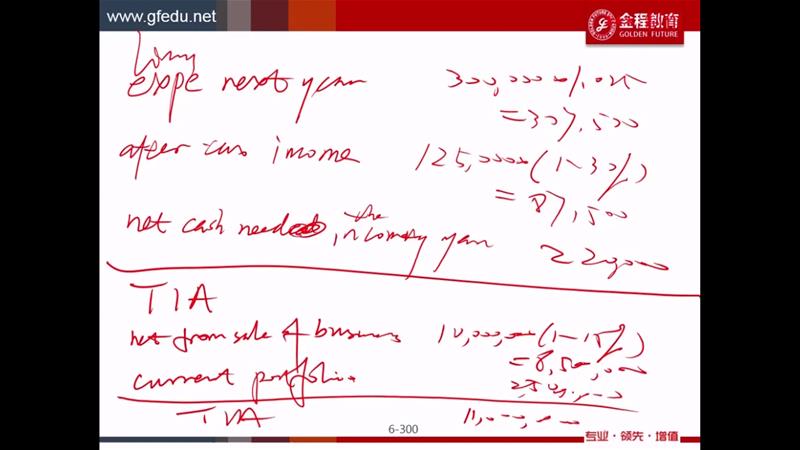 www.gfedu.net
金程教育
GOLDEN FUTURE
living
expe next year 300,000 × 1.025
= 307,500
after tax income 125,000 (1-30%)
= 87,500
net cash needed, the incoming year 220,000
TIA
net from sale of business 10,000,000 (1-15%)
= 8,500,000
current portfolio 2,500,000
TIA 11,000,000
6-300
专业·领先·增值